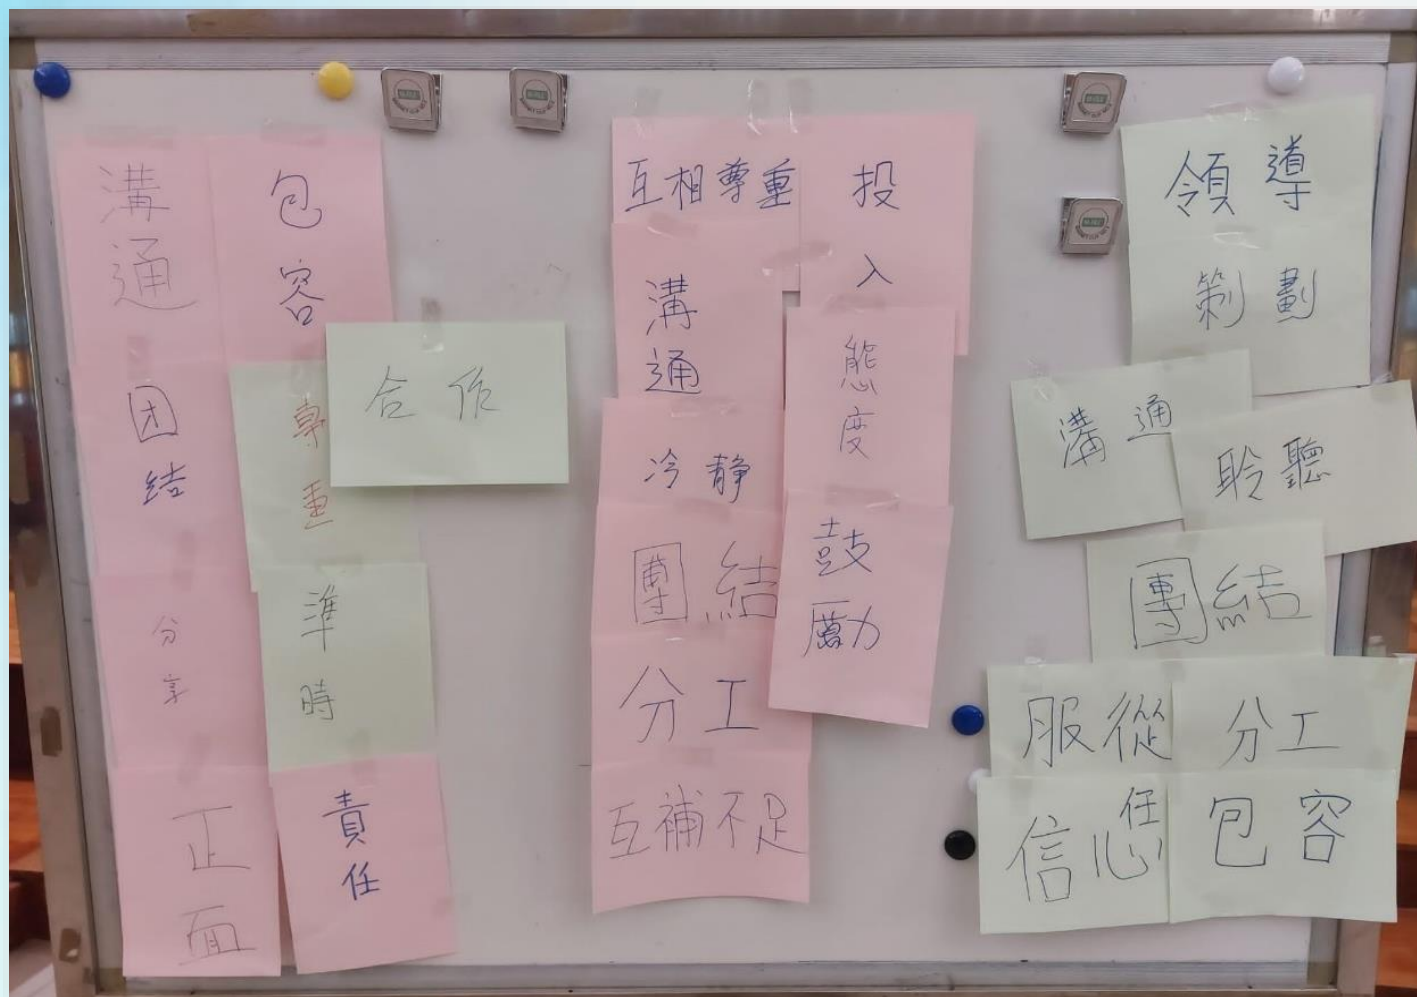 溝通
团结
分享
正面
包容
尊重
準時
責任
合作
互相尊重
溝通
冷靜
團結
分工
互補不足
投入
態度
鼓勵
領導
策劃
溝通
聆聽
團結
服從
分工
信心
任
包容